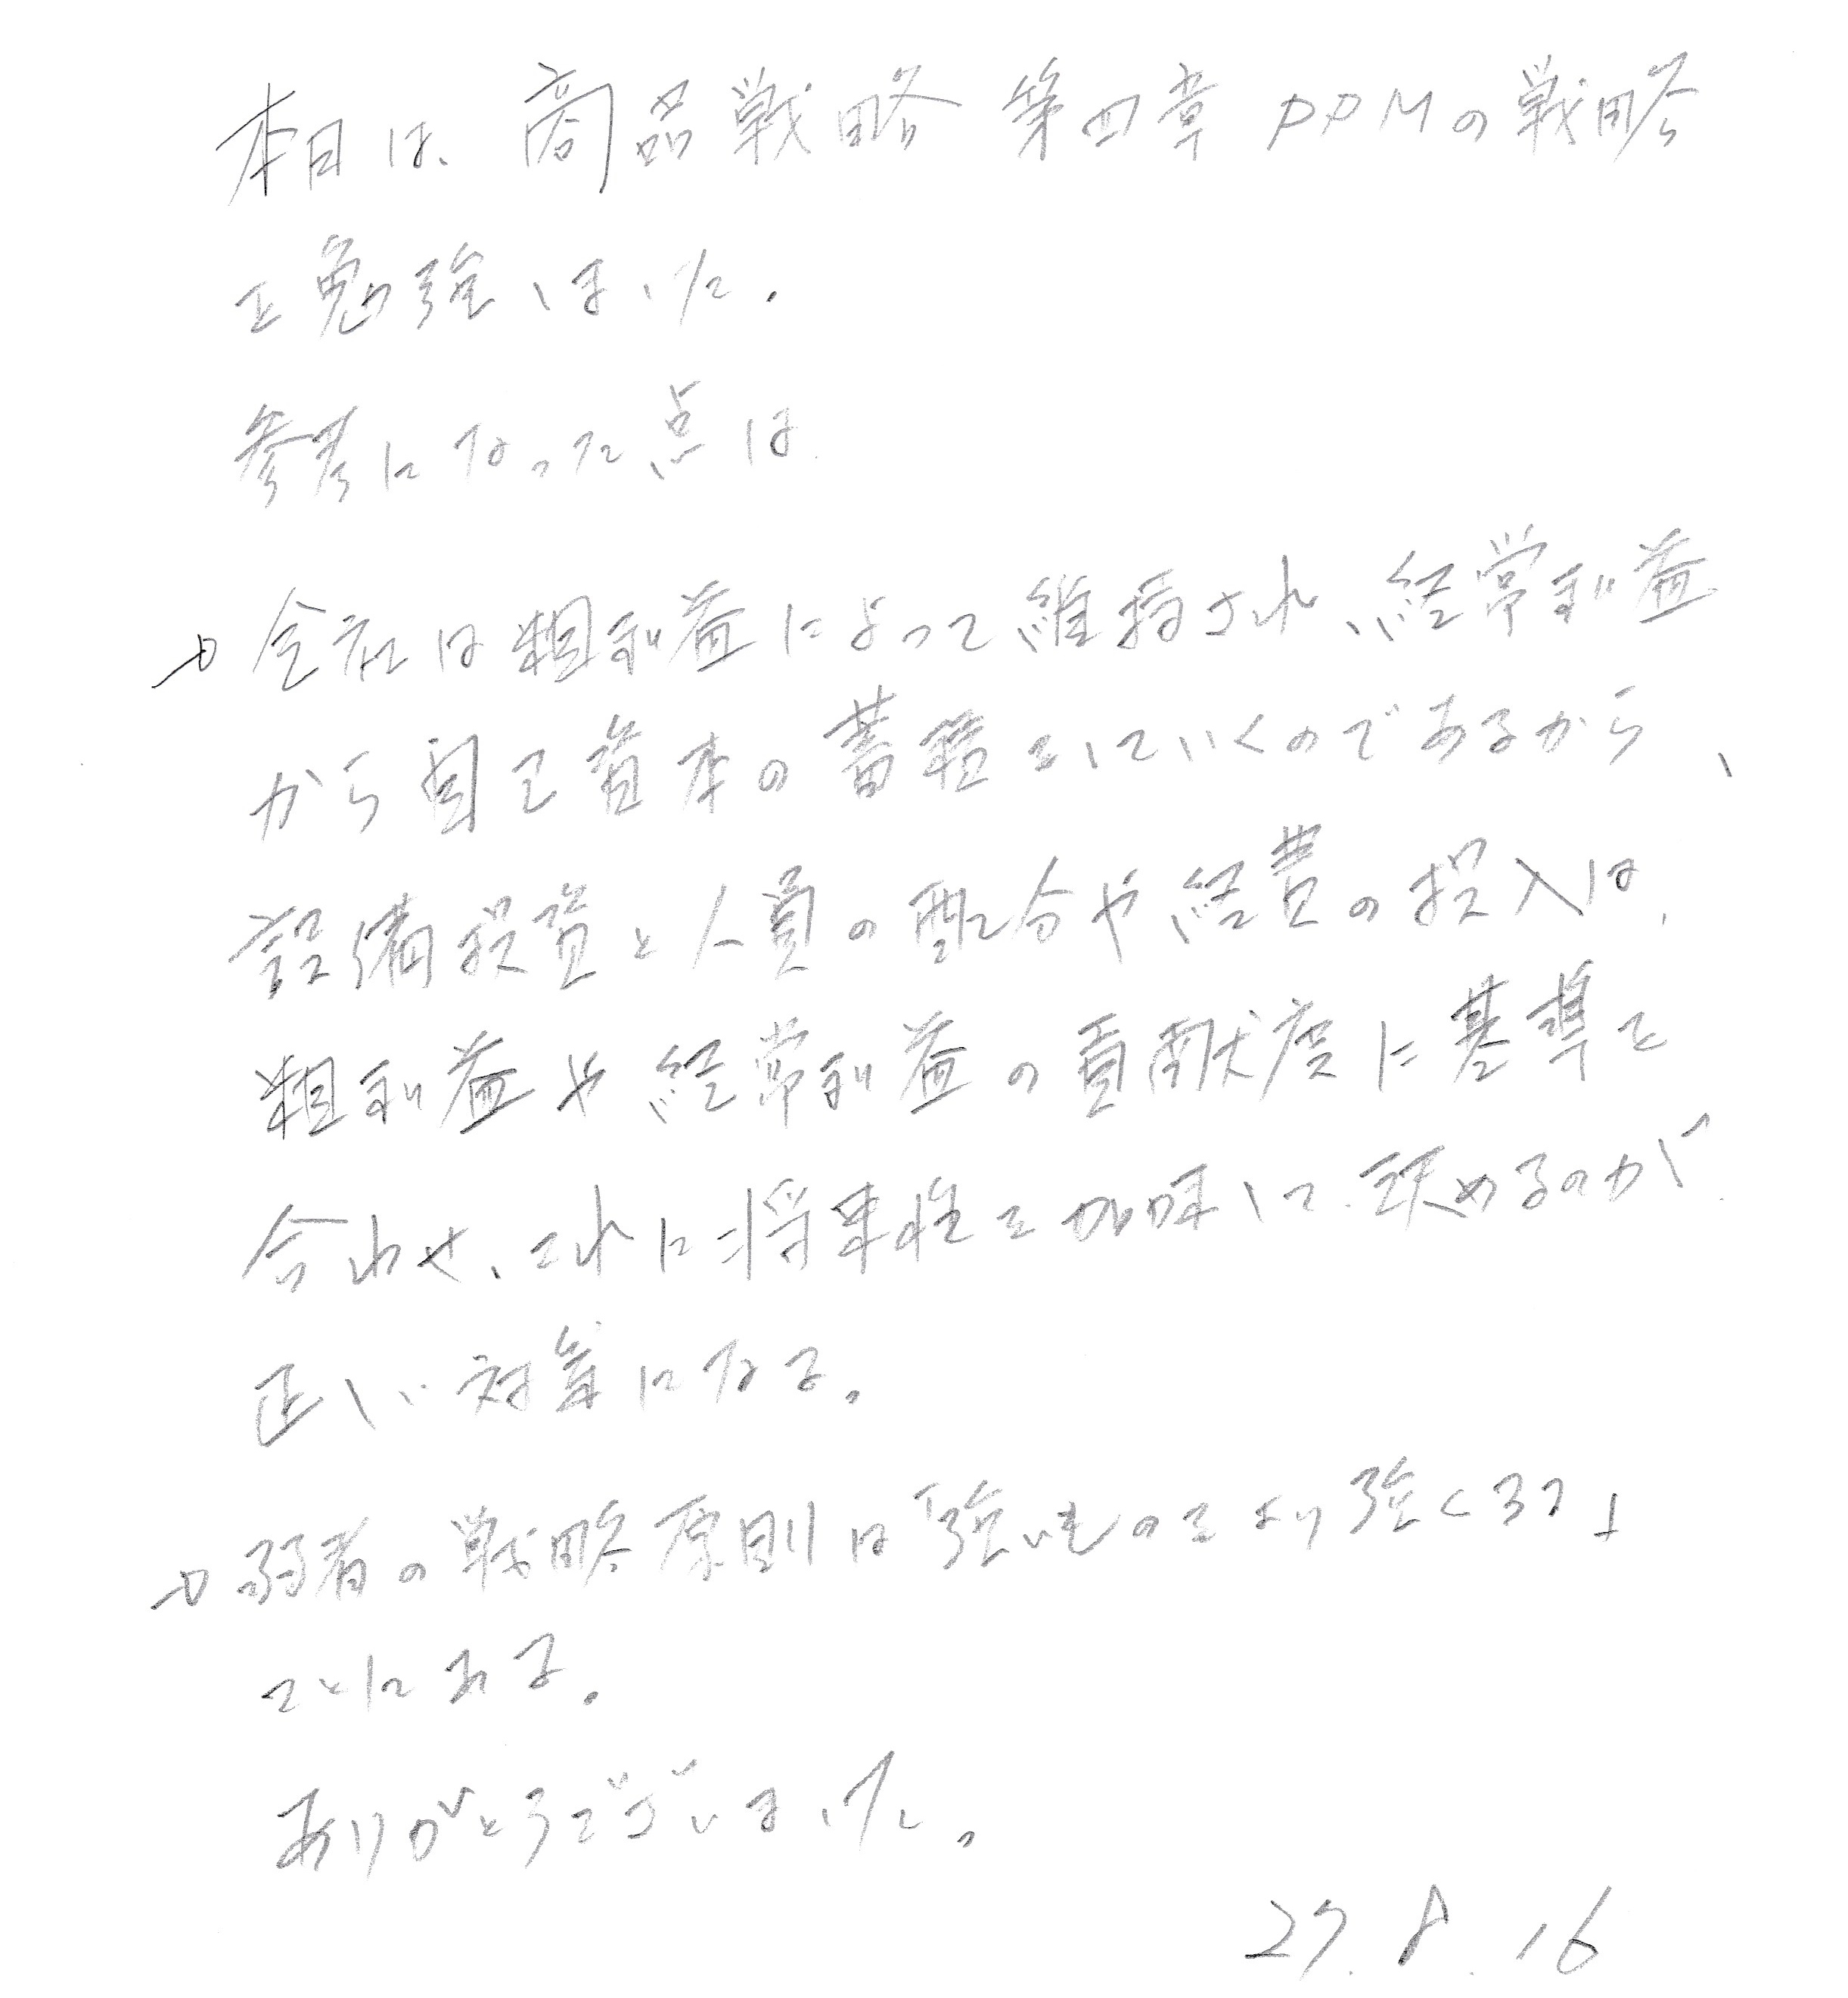 本日は、商品戦略 第四章 PPMの戦略
を勉強しました.
参考になった点は
→会社は粗利益によって維持され、経常利益
から自己資本の蓄積をしていくのであるから、
設備投資と人員の配分や経費の投入は、
粗利益や経常利益の貢献度に基準を
合わせ、これに将来性を加味して決めるのが
正しい対策になる。
→弱者の戦略原則は「強いものをより強くする」
ことにある。
ありがとうございました。
27.8.16